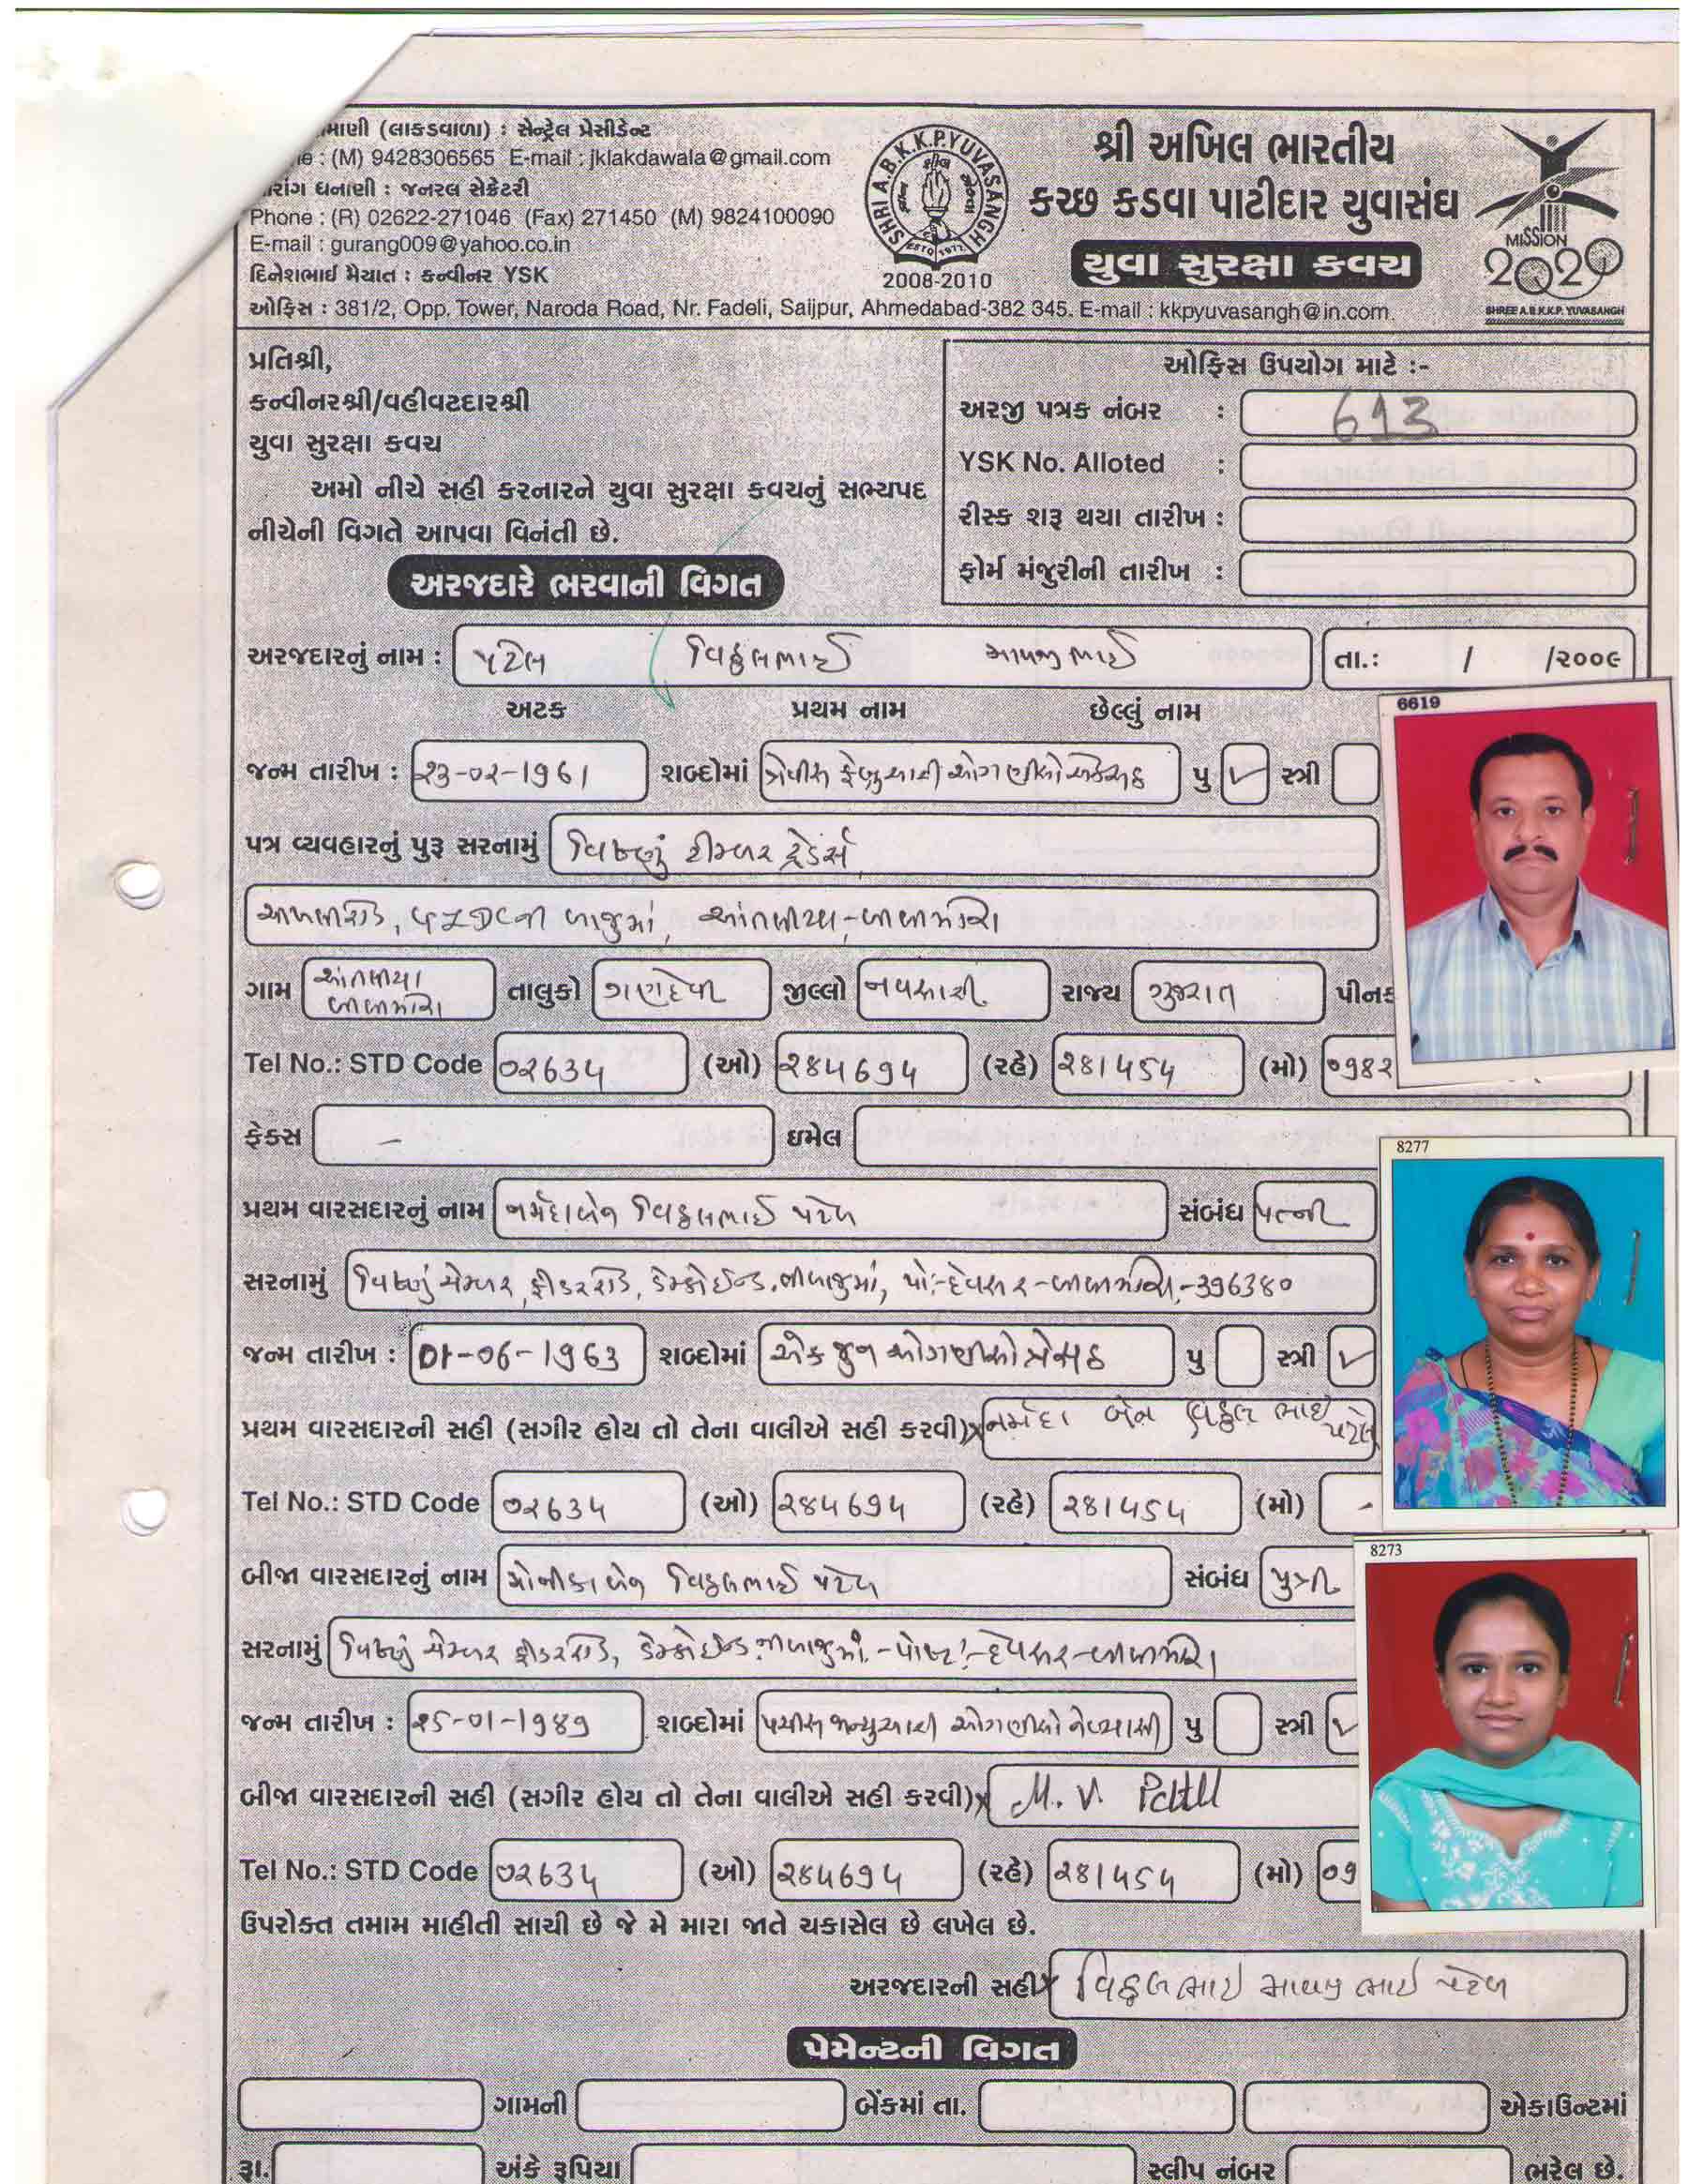 માણી (લાકડાવાળા) : સેન્ટ્રેલ પ્રેસીડેન્ટ
: (M) 9428306565 E-mail : jklakdawala@gmail.com
ધનાણી : જનરલ સેક્રેટરી
Phone : (R) 02622-271046 (Fax) 271450 (M) 9824100090
E-mail : gurang009@yahoo.co.in
દિનેશભાઈ મૈયાત : કન્વીનર YSK
SHRI A.B.K.K.P. YUVASANGH
ESTD 1977
2008-2010
શ્રી અખિલ ભારતીય
કચ્છ કડવા પાટીદાર યુવાસંઘ
યુવા સુરક્ષા કવચ
MISSION
2020
SHREE A.B.K.K.P. YUVASANGH
ઓફિસ : 381/2, Opp. Tower, Naroda Road, Nr. Fadeli, Saijpur, Ahmedabad-382 345. E-mail : kkpyuvasangh@in.com.
પ્રતિશ્રી,
કન્વીનરશ્રી/વહીવટદારશ્રી
યુવા સુરક્ષા કવચ
અમો નીચે સહી કરનારને યુવા સુરક્ષા કવચનું સભ્યપદ
નીચેની વિગતે આપવા વિનંતી છે.
ઓફિસ ઉપયોગ માટે :-
અરજી પત્રક નંબર : 613
YSK No. Alloted :
રીસ્ક શરૂ થયા તારીખ :
ફોર્મ મંજુરીની તારીખ :
અરજદારે ભરવાની વિગત
અરજદારનું નામ : પટેલ વિઠ્ઠલભાઈ માવજીભાઈ તા.: / /૨૦૦૯
અટક પ્રથમ નામ છેલ્લું નામ
6619
જન્મ તારીખ : 23-02-1961 શબ્દોમાં ત્રેવીસ ફેબ્રુઆરી ઓગણીસો એકસઠ પુ ✓ સ્ત્રી
પત્ર વ્યવહારનું પુરૂ સરનામું વિષ્ણું ટીમ્બર ટ્રેડર્સ,
GIDCની બાજુમાં, આંતલીયા-બીલીમોરા
ગામ આંતલીયા બીલીમોરા તાલુકો ગણદેવી જીલ્લો નવસારી રાજ્ય ગુજરાત પીનક
Tel No.: STD Code 02634 (ઓ) 284694 (રહે) 281454 (મો) 0982
ફેક્સ – ઇમેલ
8277
પ્રથમ વારસદારનું નામ નર્મદાબેન વિઠ્ઠલભાઈ પટેલ સંબંધ પત્ની
સરનામું વિષ્ણું ચેમ્બર, ફીડરરોડ, બાજુમાં, પો:-દેવસર-બીલીમોરા-396380
જન્મ તારીખ : 01-06-1963 શબ્દોમાં એક જુન ઓગણીસો ત્રેસઠ પુ સ્ત્રી ✓
પ્રથમ વારસદારની સહી (સગીર હોય તો તેના વાલીએ સહી કરવી) x નર્મદા બેન વિઠ્ઠલ ભાઈ પટેલ
Tel No.: STD Code 02634 (ઓ) 284694 (રહે) 281454 (મો) -
8273
બીજા વારસદારનું નામ મોનીકાબેન વિઠ્ઠલભાઈ પટેલ સંબંધ પુત્રી
સરનામું વિષ્ણું ચેમ્બર ફીડરરોડ, બાજુમાં.-પોષ્ટ:-દેવસર-બીલીમોરા
જન્મ તારીખ : 25-01-1989 શબ્દોમાં પચીસ જાન્યુઆરી ઓગણીસો નેવ્યાસી પુ સ્ત્રી ✓
બીજા વારસદારની સહી (સગીર હોય તો તેના વાલીએ સહી કરવી) x M. V. Patel
Tel No.: STD Code 02634 (ઓ) 284694 (રહે) 281454 (મો) 09
ઉપરોક્ત તમામ માહીતી સાચી છે જે મે મારા જાતે ચકાસેલ છે લખેલ છે.
અરજદારની સહી x વિઠ્ઠલભાઈ માવજીભાઈ પટેલ
પેમેન્ટની વિગત
ગામની બેંકમાં તા. એકાઉન્ટમાં
રૂા. અંકે રૂપિયા સ્લીપ નંબર ભરેલ છે.